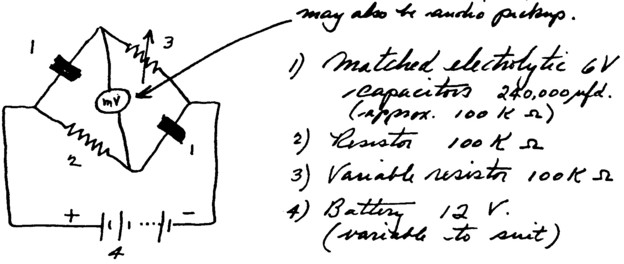 may also be audio pickup.
1
3
mV
2
1
+
-
4
1) Matched electrolytic 6V
capacitors 240,000 µfd.
(approx. 100 K Ω)
2) Resistor 100 K Ω
3) Variable resistor 100K Ω
4) Battery 12 V.
(variable to suit)